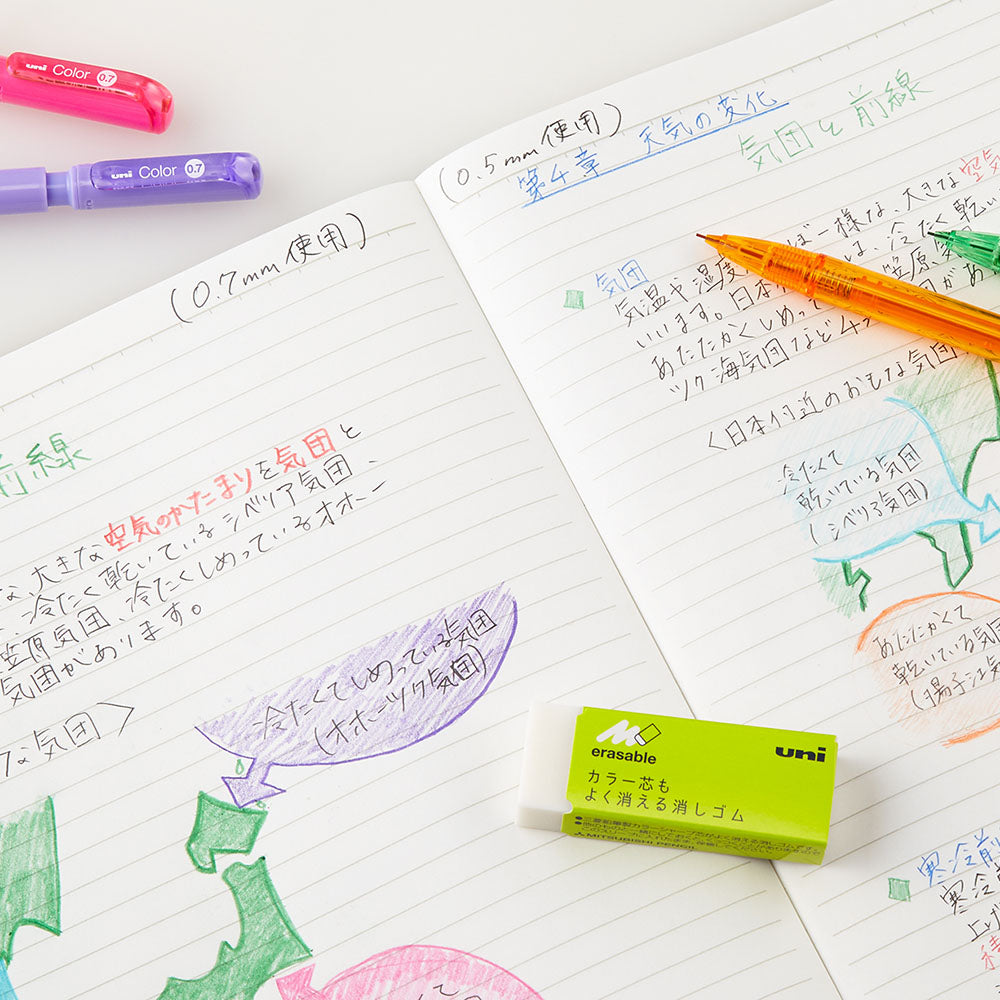 uni Color 0.7
uni Color 0.7
(0.7mm 使用)
前線
大きな空気のかたまりを気団と
冷たく乾いているシベリア気団、
気団、冷たくしめっているオホー
気団があります。
な気団〉
冷たくてしめっている気団
(オホーツク気団)
(0.5mm 使用)
第4章 天気の変化
気団と前線
気団
気温や湿度 ぼ一様な、大きな空気
いいます。日本 は、冷たく乾い
あたたかくしめって 笠原気
ツク海気団など4つ 団があ
〈日本付近のおもな気団
冷たくて
乾いている気団
(シベリア気団)
あたたかくて
乾いている気団
(揚子江気
erasable
uni
カラー芯も
よく消える消しゴム
MITSUBISHI PENCIL
寒冷前
寒冷
上げ